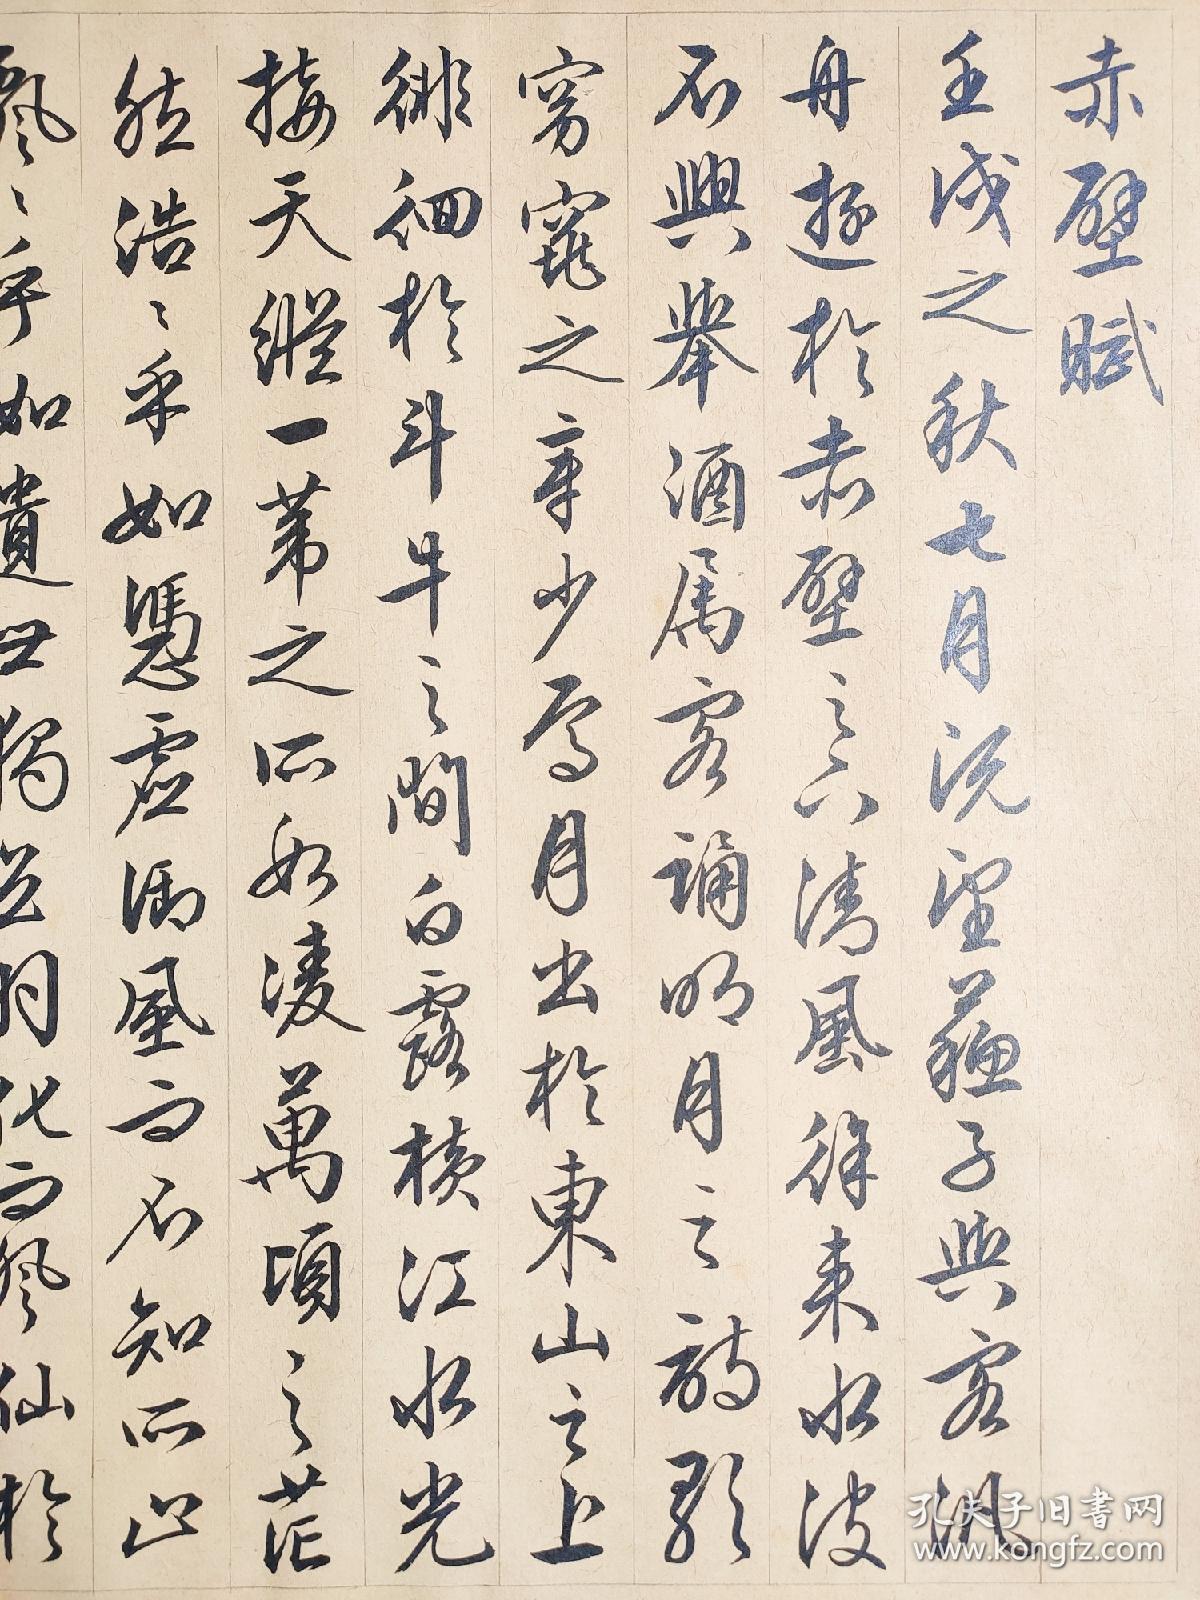 赤壁賦
壬戌之秋七月既望蘇子與客汎
舟遊於赤壁之下清風徐來水波
不興舉酒属客誦明月之詩歌
窈窕之章少焉月出於東山之上
徘徊於斗牛之間白露横江水光
接天縱一葦之所如凌萬頃之茫
然浩〻乎如憑虚御風而不知所止
飄〻乎如遺世獨立羽化而登仙於
孔夫子旧书网
www.kongfz.com